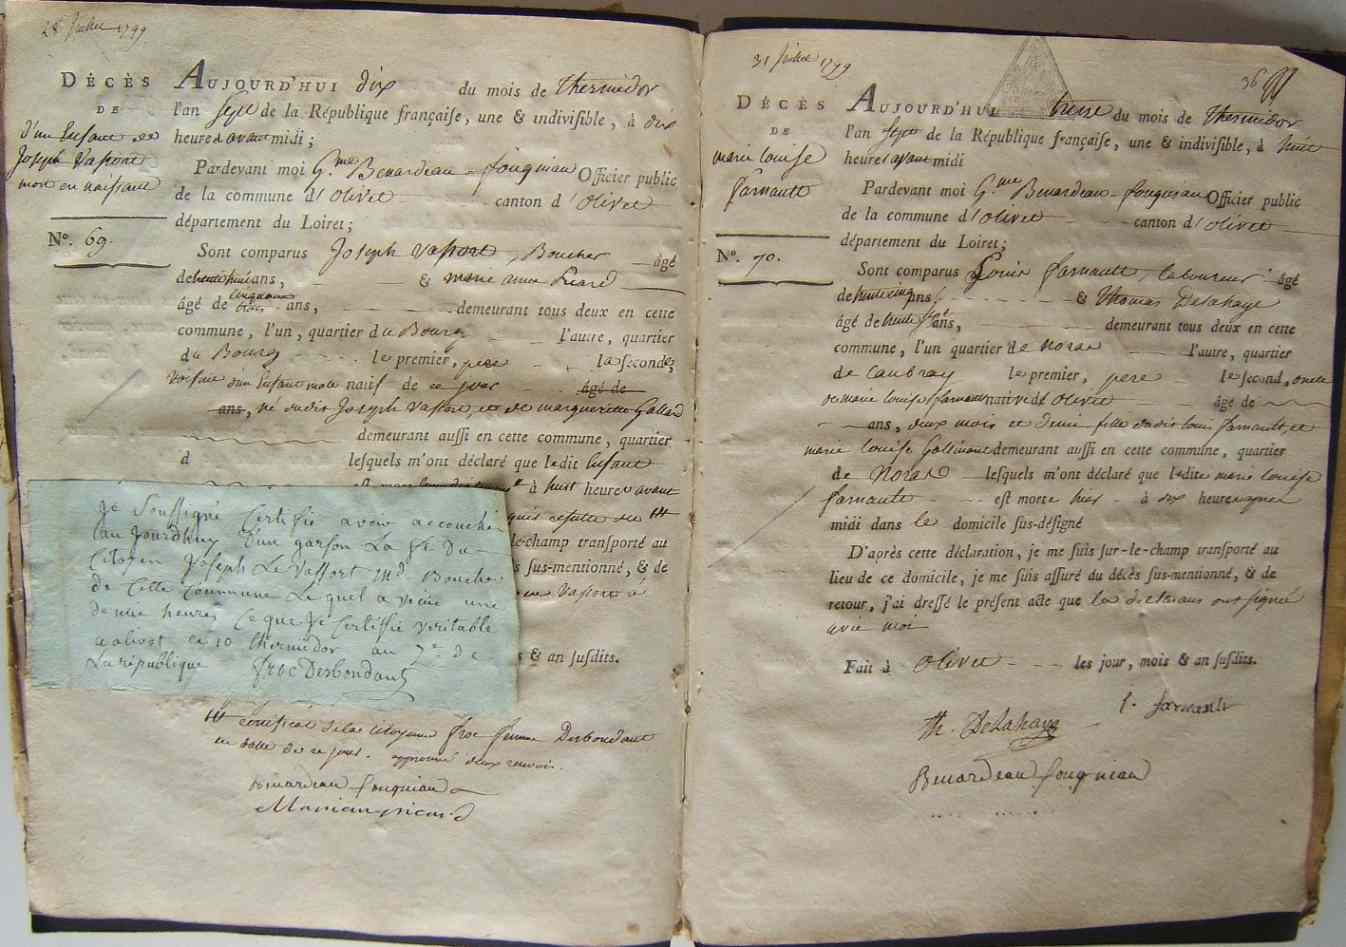 28 Juillet 1799
DÉCÈS
DE
d'un Enfant de
Joseph Vassort
mort en naissant
N°. 69.
AUJOURD'HUI dix du mois de thermidor
l'an sept de la République françaiſe, une & indiviſible, à dix
heures avant midi;
Pardevant moi G.me Benardeau-fougniau Officier public
de la commune d'Olivet canton d'Olivet
département du Loiret;
Sont comparus Joseph Vassort, Boucher âgé
de ans, & marie anne
âgé de cinquante trois ans, demeurant tous deux en cette
commune, l'un, quartier du Bourg l'autre, quartier
du Bourg le premier, pere la ſeconde,
voisine d'un Enfant male natif de ce jour âgé de
ans, né dudit Joseph Vassort, et de margueritte Gallard
demeurant auſſi en cette commune, quartier
d leſquels m'ont déclaré que ledit Enfant
à huit heures avant
le-champ tranſporté au
s ſus-mentionné, & de
Vassort a
s & an ſuſdits.
Je Soussigné Certifie avoir accouché
aujourdhuy d'un garson La fe Du
Citoyen Joseph Le Vassort Md Boucher
de Cette Commune Le quel a vécu une
demie heure, Ce que Je Certifie veritable
a olivet ce 10 thermidor an 7e de
La république froc Desbondant
certificat de la Citoyenne froc femme Desbondant
en datte de ce jour. approuvé deux renvois.
Benardeau fougniau
31 Juillet 1799
36
DÉCÈS
DE
marie louise
farnault
N°. 70.
AUJOURD'HUI treize du mois de thermidor
l'an sept de la République françaiſe, une & indiviſible, à huit
heures avant midi
Pardevant moi G.me Benardeau-fougniau Officier public
de la commune d'Olivet canton d'Olivet
département du Loiret;
Sont comparus Louis farnault, laboureur âgé
de trente cinq ans, & thomas Delahaye
âgé de trente sept ans, demeurant tous deux en cette
commune, l'un quartier de Noras l'autre, quartier
de Caubray le premier, pere le ſecond, oncle
de marie louise farnault native d'Olivet âgé de
ans, deux mois et demi fille dudit louis farnault, et
marie louise demeurant auſſi en cette commune, quartier
de Noras leſquels m'ont déclaré que ladite marie louise
farnault est morte hier à dix heures après
midi dans le domicile ſus-déſigné
D'après cette déclaration, je me ſuis ſur-le-champ tranſporté au
lieu de ce domicile, je me ſuis aſſuré du décès ſus-mentionné, & de
retour, j'ai dreſſé le préſent acte que les declarans ont signé
avec moi
Fait à Olivet les jour, mois & an ſuſdits.
l. farnault
th. Delahaye
Benardeau fougniau